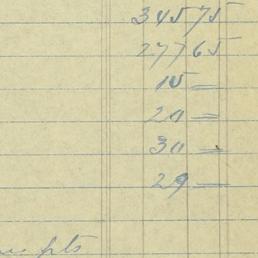 345 75
277 65
15 =
20 =
30 =
29 —
pts